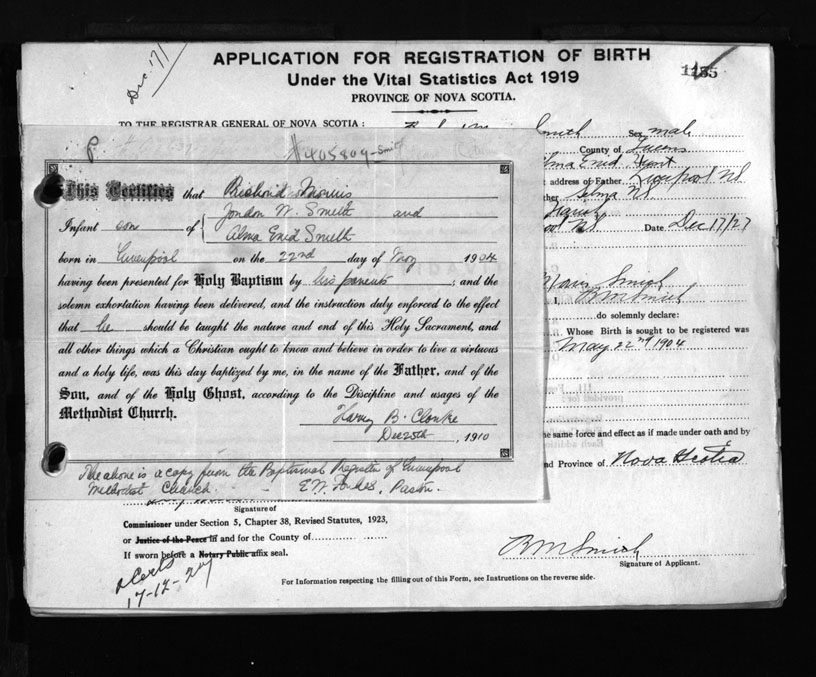 APPLICATION FOR REGISTRATION OF BIRTH
Under the Vital Statistics Act 1919
PROVINCE OF NOVA SCOTIA.
1185
Dec 17/
TO THE REGISTRAR GENERAL OF NOVA SCOTIA:
Smith Sex male
County of Queens
Alma Enid Hunt
t address of Father Liverpool NS
ther Selma NS
ool NS Date Dec 17/27
Smith
I, R M Smith
do solemnly declare:
Whose Birth is sought to be registered was
May 22nd 1904
he same force and effect as if made under oath and by
nd Province of Nova Scotia
#405809-Smith
This Certifies that Richard Morris
Infant son of Gordon W. Smith and
Alma Enid Smith
born in Liverpool on the 22nd day of May 1904
having been presented for Holy Baptism by his parents ; and the
solemn exhortation having been delivered, and the instruction duly enforced to the effect
that he should be taught the nature and end of this Holy Sacrament, and
all other things which a Christian ought to know and believe in order to live a virtuous
and a holy life, was this day baptized by me, in the name of the Father, and of the
Son, and of the Holy Ghost, according to the Discipline and usages of the
Methodist Church.
Harry B. Clarke
Dec 25th, 1910
The above is a copy from the Baptismal Register of Liverpool
Methodist Church E W Forbes, Pastor.
Signature of
Commissioner under Section 5, Chapter 38, Revised Statutes, 1923,
or Justice of the Peace in and for the County of
If sworn before a Notary Public affix seal.
R M Smith
Signature of Applicant.
17-12-27
For Information respecting the filling out of this Form, see Instructions on the reverse side.